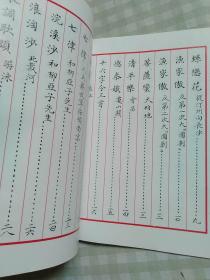 蝶戀花 從汀州向長沙 九
漁家傲 反第一次大圍剿
漁家傲 反第二次大圍剿
菩薩蠻 大柏地
清平樂 會昌
憶秦娥 婁山關
十六字令三首 一六
七律
七律 和柳亞子先生
浣溪沙 和柳亞子先生
浪淘沙 北戴河 二六
水調歌頭 游泳 二八